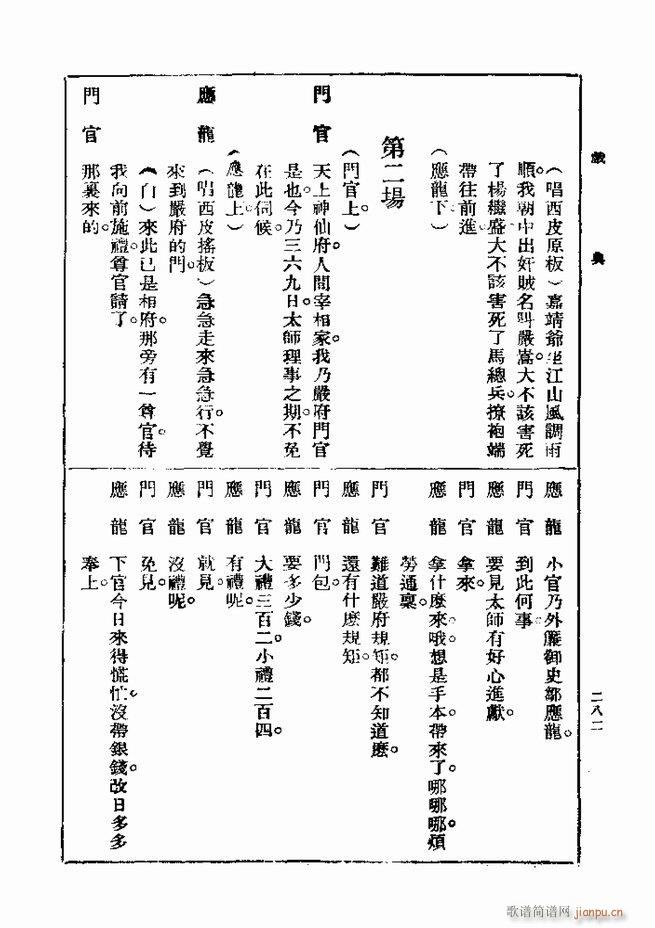 戲典
二八二
（唱西皮原板）嘉靖爺坐江山風調雨
順。我朝中出奸賊名叫嚴嵩。大不該害死
了楊繼盛大不該害死了馬總兵。撩袍端
帶往前進。
（應龍下）
第二場
（門官上）
門官 天上神仙府。人間宰相家。我乃嚴府門官
是也。今乃三六九日。太師理事之期。不免
在此伺候。
（應龍上）
應龍 （唱西皮搖板）急急走來急急行。不覺
來到嚴府的門。
（白）來此已是相府。那旁有一尊官。待
我向前施禮。尊官請了。
門官 那裏來的。
應龍 小官乃外簾御史鄒應龍。
門官 到此何事。
應龍 要見太師有好心進獻。
門官 拿來。
應龍 拿什麼來。哦。想是手本。帶來了。哪哪哪。煩
勞通稟。
門官 難道嚴府規矩。都不知道麼。
應龍 還有什麼規矩。
門官 門包。
應龍 要多少錢。
門官 大禮三百二。小禮二百四。
應龍 有禮呢。
門官 就見。
應龍 沒禮呢。
門官 免見。
應龍 下官今日來得慌忙。沒帶銀錢。改日多多
奉上。
歌谱简谱网
jianpu.cn